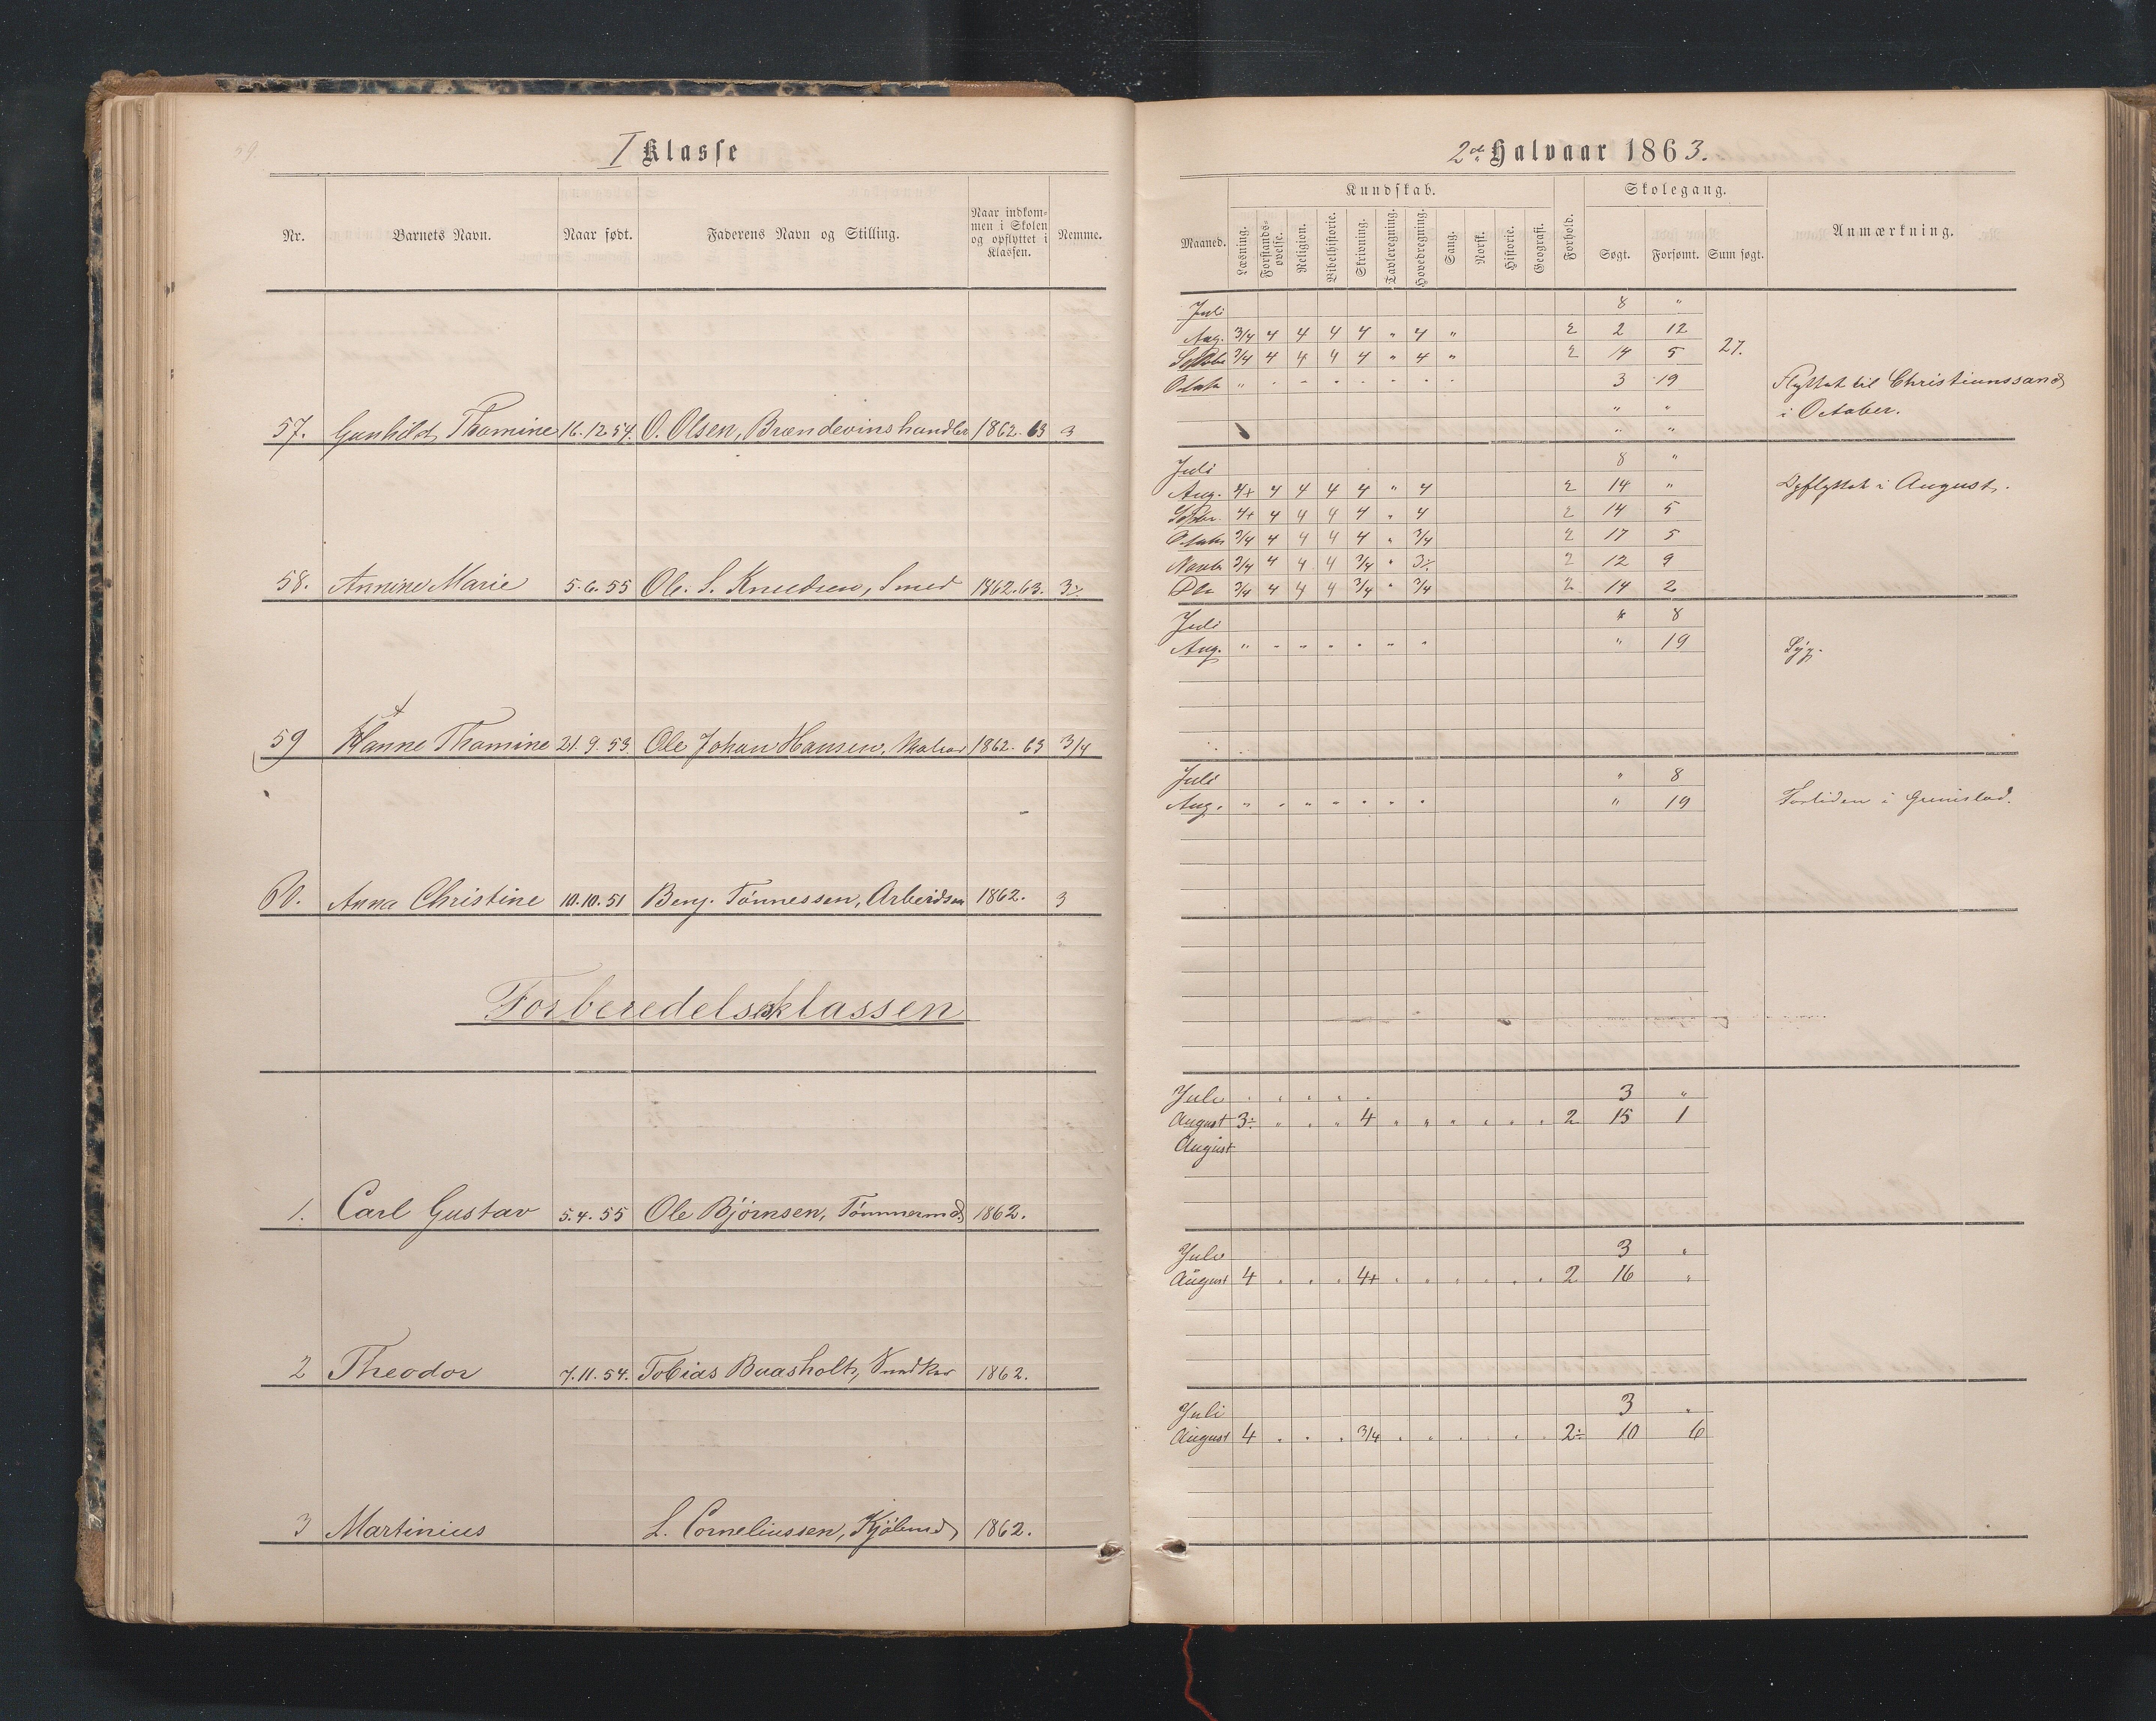 59.
I Klasse
2det Halvaar 1863.
Nr. Barnets Navn. Naar født. Faderens Navn og Stilling. Naar indkom-
men i Skolen
og opflyttet i
Klassen. Nemme.
Maaned. Kundskab. Læsning. Forstands-
øvelse. Religion. Bibelhistorie. Skrivning. Tavleregning. Hovedregning. Sang. Norsk. Historie. Geografi. Forhold. Skolegang. Søgt. Forsømt. Sum søgt. Anmærkning.
57. Gunhild Thomine 16.12.54. O. Olsen, Brændevinshandler 1862. 63 3
Juli 8 "
Aug. 3/4 4 4 4 4 " 4 " 2 2 12
Septbr 3/4 4 4 4 4 " 4 " 2 14 5 27.
Octobr " " " " " " " " 3 19 Flyttet til Christianssand
" " i October.
" "
58. Annine Marie 5.6.55 Ole S. Knudsen, Smed 1862.63. 3÷
Juli 8 "
Aug. 4+ 4 4 4 4 " 4 2 14 " Opflyttet i August.
Septbr. 4+ 4 4 4 4 " 4 2 14 5
Octobr 3/4 4 4 4 4 " 3/4 2 17 5
Novb 3/4 4 4 4 3/4 " 3÷ 2 12 9
Dbr 3/4 4 4 4 3/4 " 3/4 2 14 2
59 Hanne Thomine 21.9.53. Ole Johan Hansen, Matros 1862. 63 3/4
Juli " 8
Aug. " " " " " " " " 19 Syg.
60. Anna Christine 10.10.51 Benj. Tønnessen, Arbeidsm 1862. 3
Juli " 8
Aug. " " " " " " " " 19 Fortiden i Grimstad.
Forberedelsesklassen
1. Carl Gustav 5.4.55 Ole Bjørnsen, Tømmermd 1862.
Juli " " " " " 3 "
August 3÷ " " " 4 " " " " " " 2 15 1
August
2 Theodor 7.11.54. Tobias Baasholt, 1862.
Juli 3 "
August 4 " " " 4+ " " " " " " 2 16 "
3 Martinius L. Corneliussen, Kjølmd 1862.
Juli 3 "
August 4 " " " 3/4 " " " " " " 2÷ 10 6